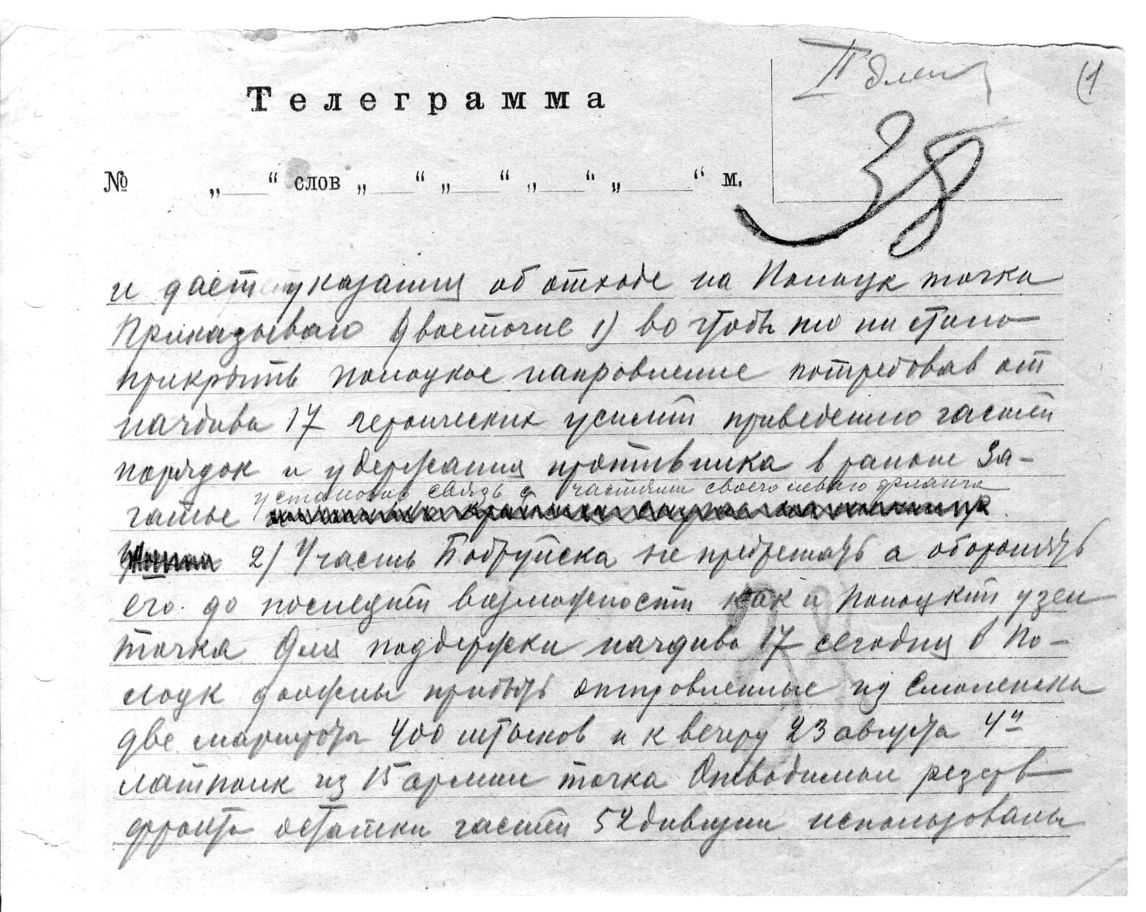 (1
38
Телеграмма
№ „ “ слов „ “ „ “ „ “ „ “ м.
и дает указания об отходе на Полоцк точка
Приказываю двоеточие 1) во чтобы то ни стало
прикрыть полоцкое направление потребовав от
начдива 17 героических усилий приведению частей
порядок и удержания противника в районе За-
установив связь с частями своего левого фланга
гатье
2) Участь Бобруйска не предрешать а оборонять
его до последней возможности как и Полоцкий узел
точка Для поддержки начдива 17 сегодня в По-
лоцк должны прибыть отправленные из Смоленска
две маршроты 400 штыков и к вечеру 23 августа 4й
латполк из 15 армии точка Отводимые резерв
фронта остатки частей 52 дивизии использованы